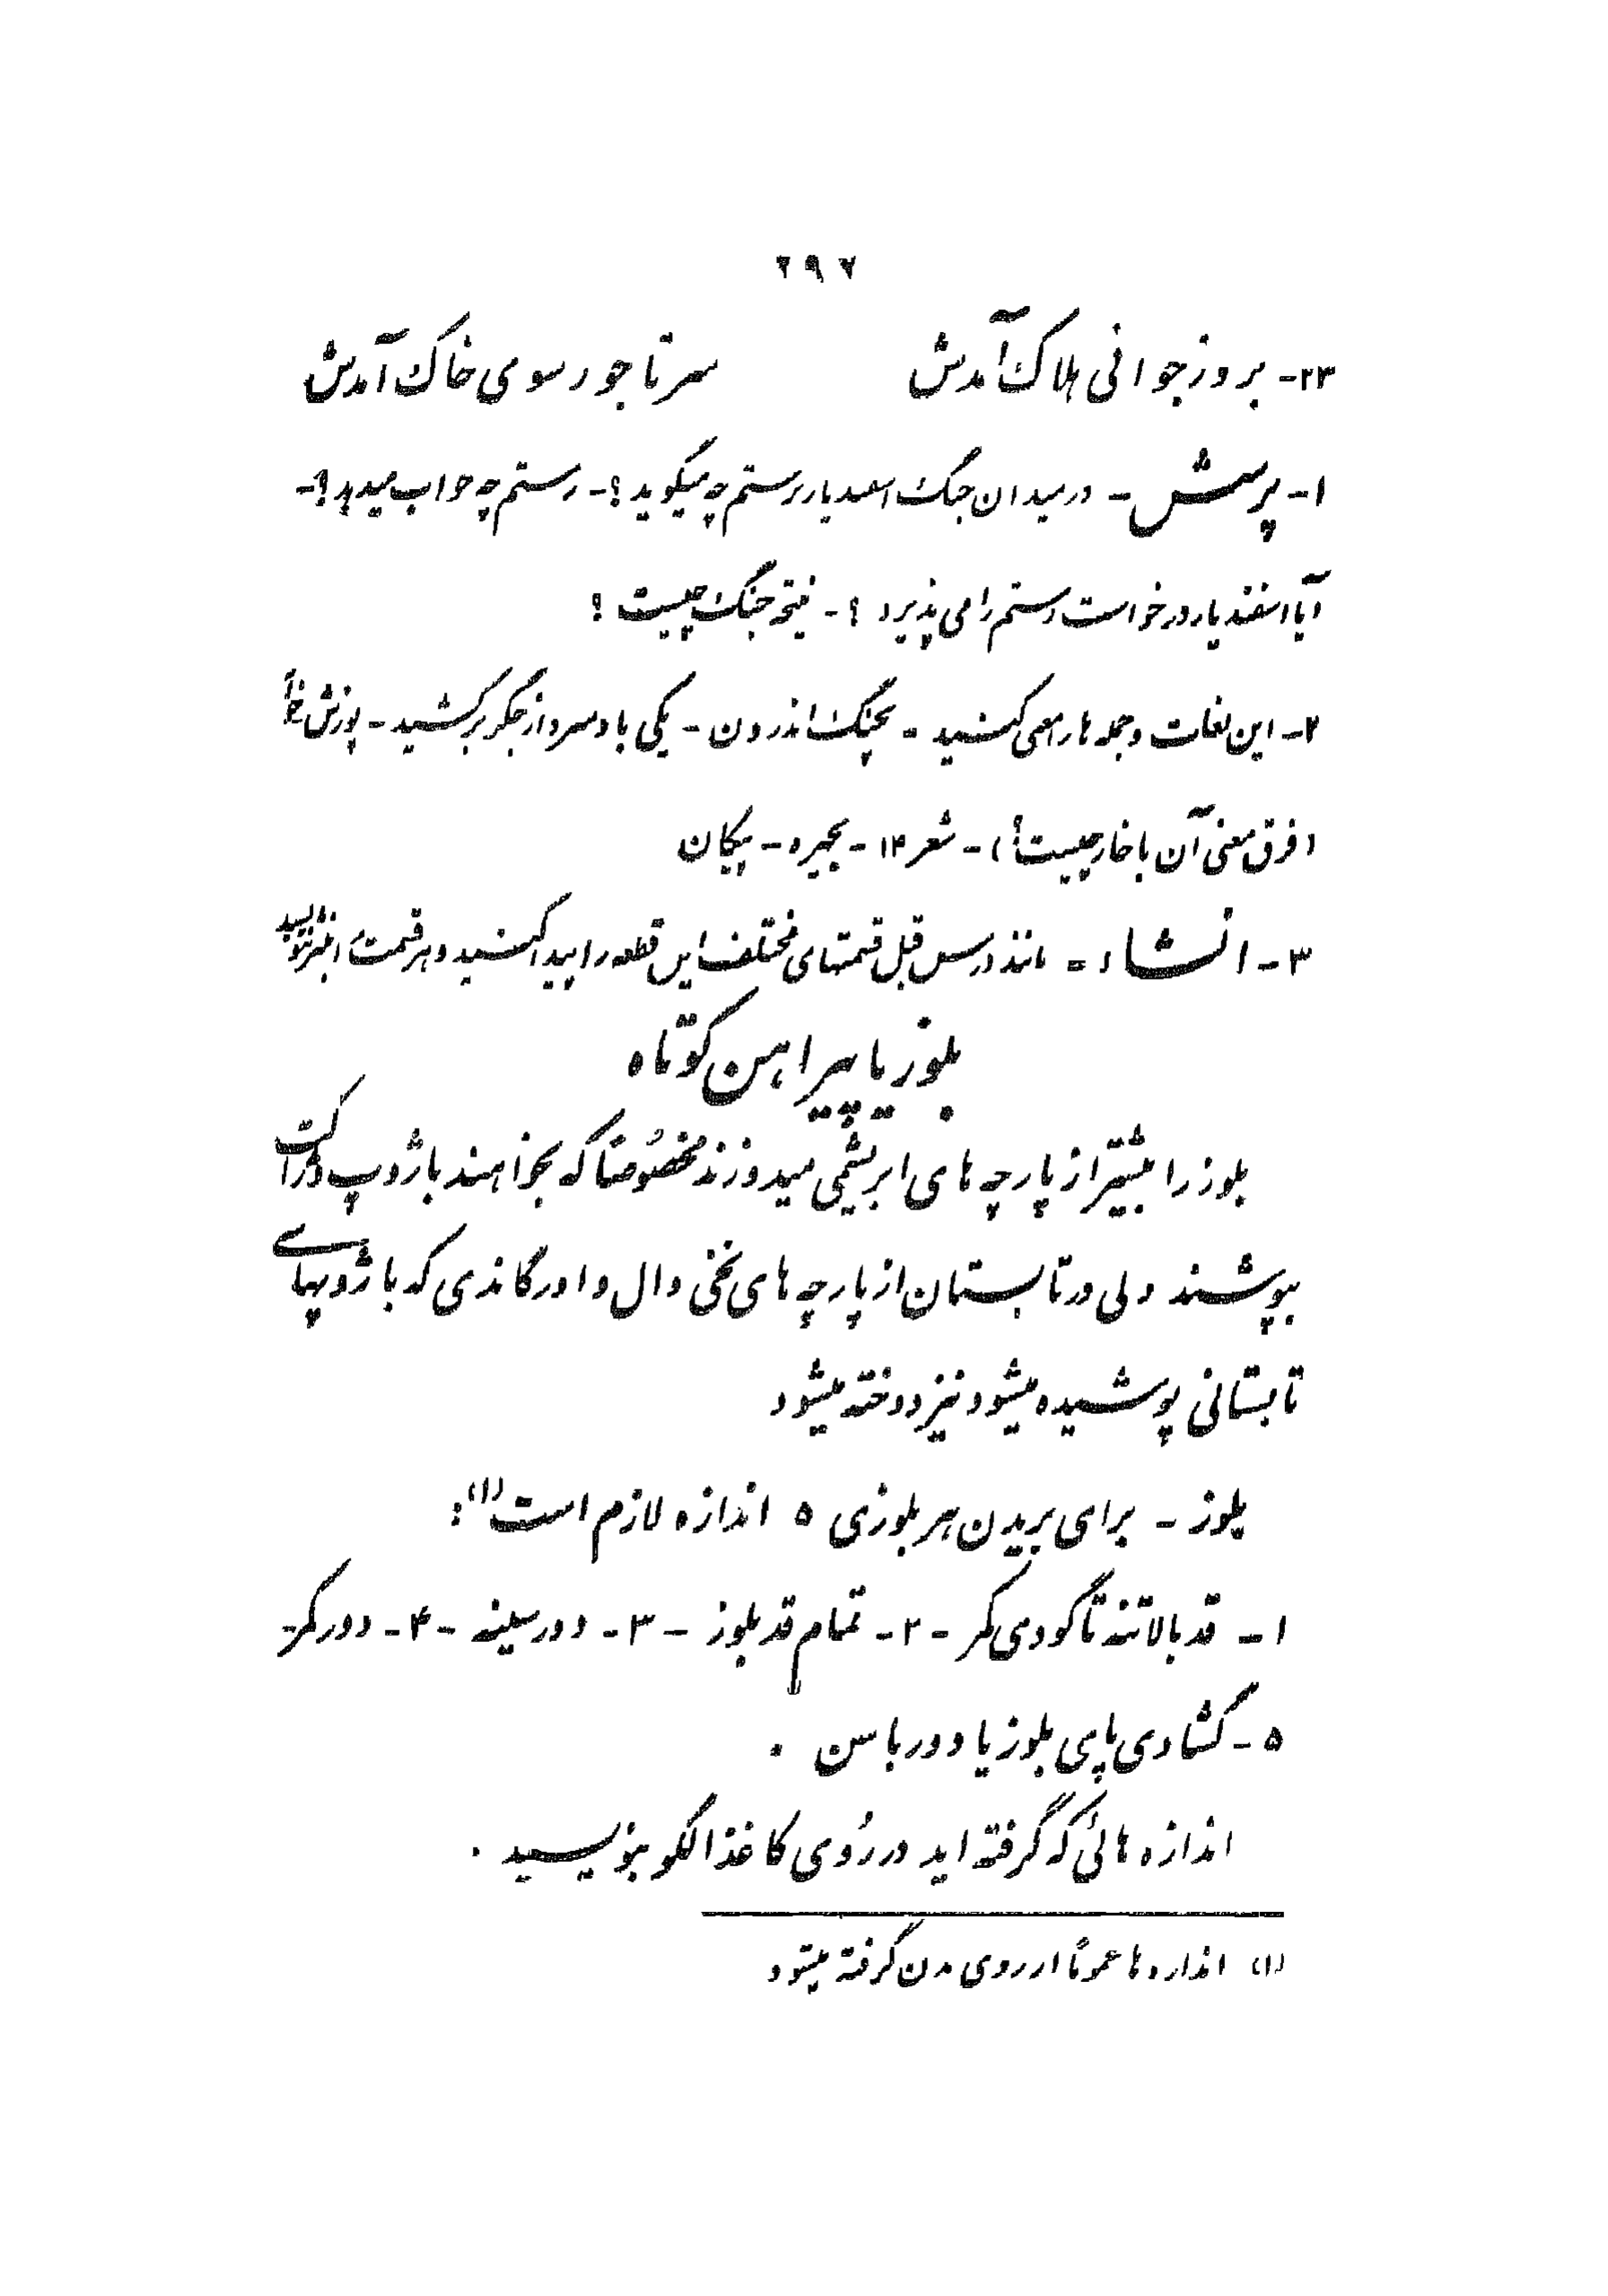 ۲۹۷
۲۳- بروز جوانی هلاک آمدش سر تاجور سوی خاک آمدش
۱- پرسش - در میدان جنگ اسفندیار برستم چه میگوید ؟ - رستم چه جواب میدهد ؟ -
آیا اسفندیار درخواست رستم را می پذیرد ؟ - نتیجه جنگ چیست ؟
۲- این لغات و جمله ها را معنی کنید - بچنگ اندرون - یکی باد سرد از جگر برکشید - پوزش
(فرق معنی آن با خار چیست ؟) - شعر ۱۴ - بخیره - پیکان
۳- انشاء - مانند درس قبل قسمتهای مختلف این قطعه را پیدا کنید و هر قسمت را بنثر بنویسید
بلوز یا پیراهن کوتاه
بلوز را بیشتر از پارچه های ابریشمی میدوزند مخصوصاً که بخواهند با ژوپ و ژاکت
بپوشند ولی در تابستان از پارچه های نخی وال و اورگاندی که با ژوپهای
تابستانی پوشیده میشود نیز دوخته میشود
بلوز - برای بریدن هر بلوزی ۵ اندازه لازم است (۱) :
۱- قد بالاتنه تا گودی کمر - ۲- تمام قد بلوز - ۳- دور سینه - ۴- دور کمر -
۵- گشادی پای بلوز یا دور باسن .
اندازه هائی که گرفته اید در روی کاغذ الگو بنویسید .
(۱) اندازه ها عموماً از روی بدن گرفته میشود